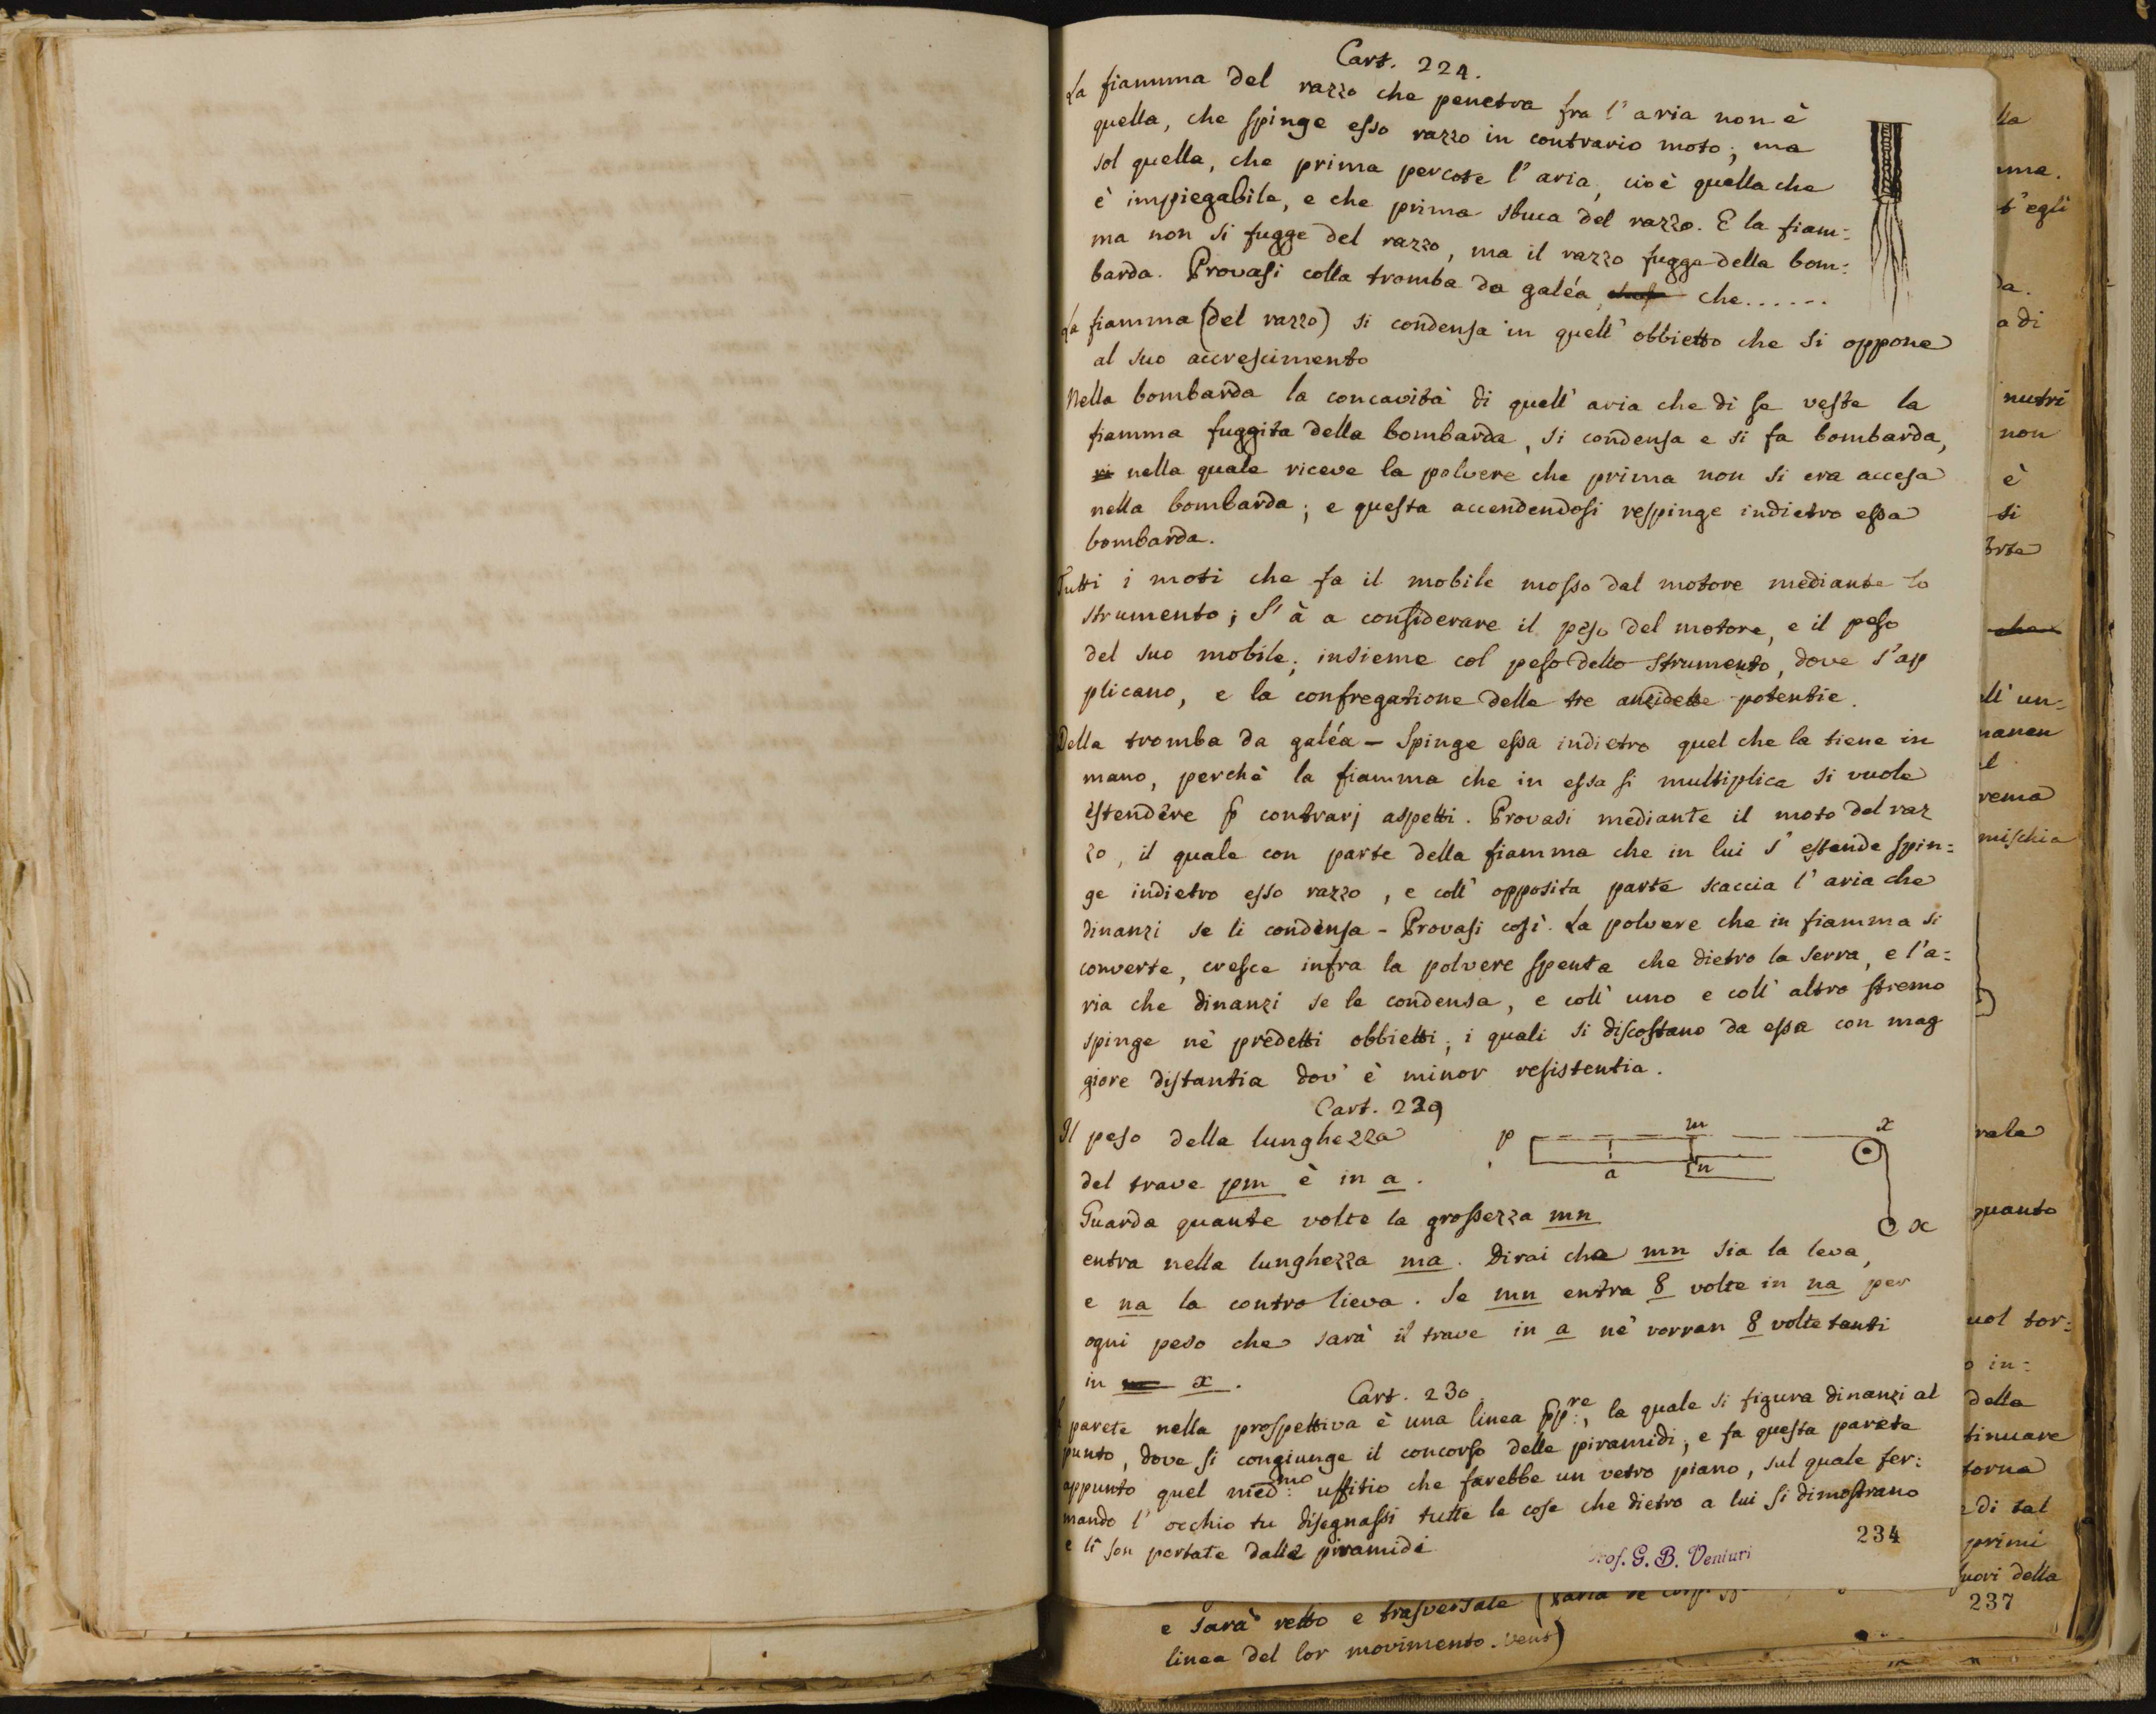 Cart. 224.
La fiamma del razzo che penetra fra l'aria non è
quella, che spinge esso razzo in contrario moto; ma
sol quella, che prima percote l'aria, cioè quella che
è impiegabile, e che prima sbuca del razzo. E la fiam=
ma non si fugge del razzo, ma il razzo fugge della bom=
barda. Provasi colla tromba da galéa, che......
La fiamma (del razzo) si condensa in quell' obbietto che si oppone
al suo accrescimento
Nella bombarda la concavità di quell' aria che di se veste la
fiamma fuggita della bombarda, si condensa e si fa bombarda,
ri nella quale riceve la polvere che prima non si era accesa
nella bombarda; e questa accendendosi respinge indietro essa
bombarda.
Tutti i moti che fa il mobile mosso dal motore mediante lo
strumento; S' à a considerare il peso del motore, e il peso
del suo mobile; insieme col peso dello strumento, dove s'ap
plicano, e la confregatione delle tre anzidette potentie.
Della tromba da galéa - Spinge essa indietro quel che la tiene in
mano, perchè la fiamma che in essa si multiplica si vuole
estendere p contrarj aspetti. Provasi mediante il moto del raz
zo, il quale con parte della fiamma che in lui s' estende spin=
ge indietro esso razzo, e coll' opposita parte scaccia l'aria che
dinanzi se li condensa - Provasi così. La polvere che in fiamma si
converte, cresce infra la polvere spenta che dietro la serra, e l'a=
ria che dinanzi se le condensa, e coll' uno e coll' altro stremo
spinge ne' predetti obbietti; i quali si discostano da essa con mag
giore distantia dov' è minor resistentia.
Cart. 229
Il peso della lunghezza
del trave pm è in a.
p m x
a n
x
Guarda quante volte la grossezza mn
entra nella lunghezza ma. Dirai che mn sia la leva,
e na la contro lieva. Se mn entra 8 volte in na per
ogni peso che sarà il trave in a ne vorran 8 volte tanti
in x.
Cart. 230
parete nella prospettiva è una linea ppre:, la quale si figura dinanzi al
punto, dove si congiunge il concorso delle piramidi; e fa questa parete
appunto quel medmo: uffitio che farebbe un vetro piano, sul quale fer=
mando l' occhio tu disegnassi tutte le cose che dietro a lui si dimostrano
e li son portate dalle piramidi
234
Prof. G. B. Venturi
e sarà retto e trasversale
linea del lor movimento. Vent)
lla
t'egli
da.
a di
nutri
non
è
si
che
ll' un=
rema
mischia
quanto
uol tor=
o in=
della
tinuare
torna
e di tal
primi
fuori della
237